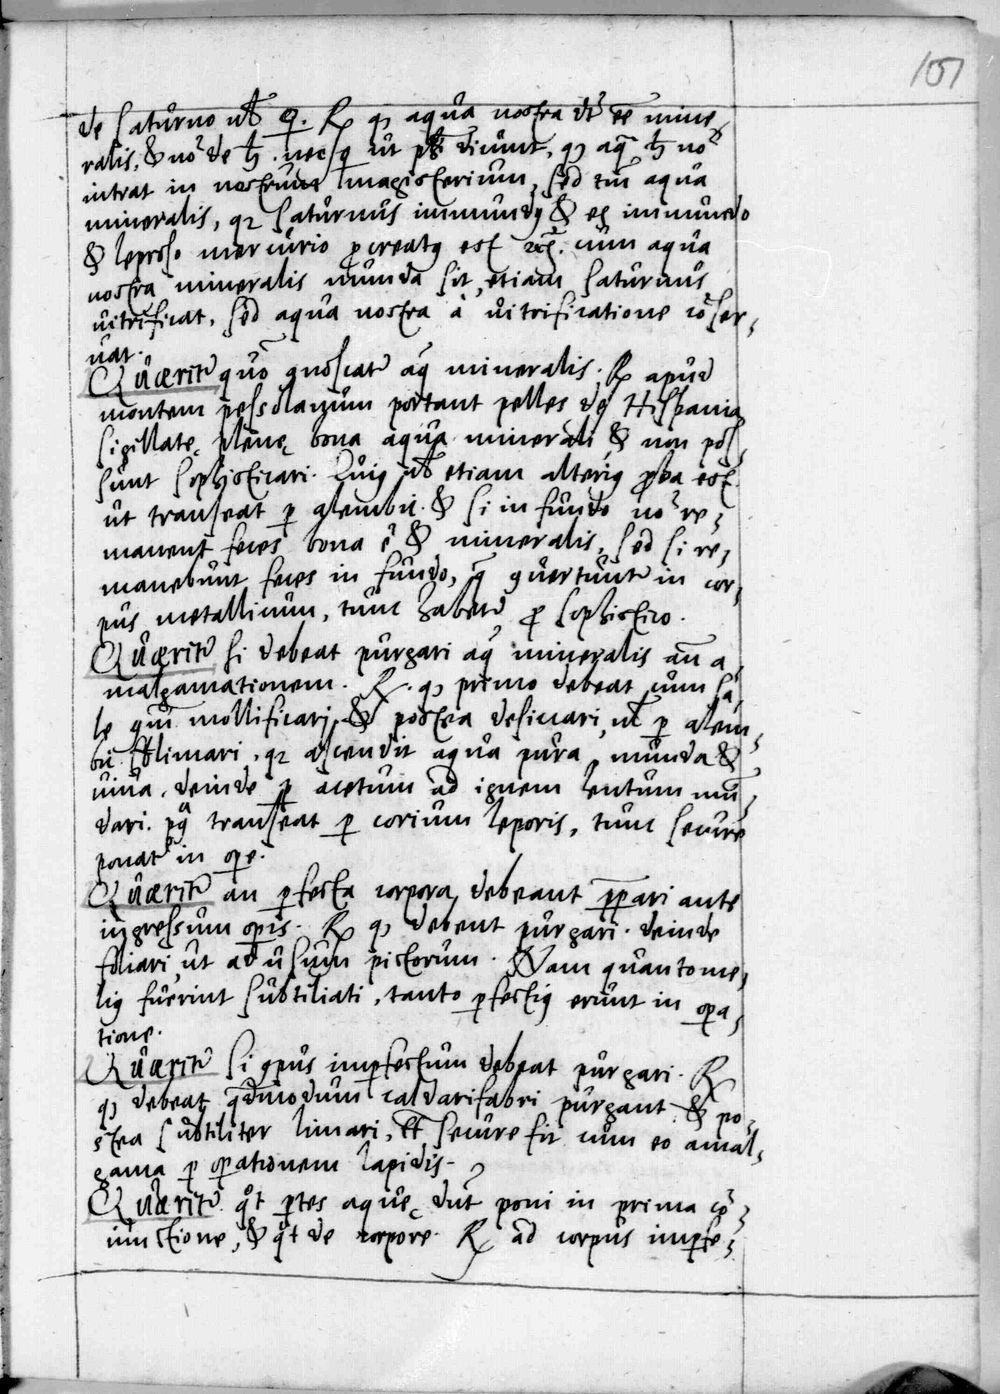 151
de Saturno ul̃ ☿. R̸ qꝫ aqua nostra dr̃ eē mine,
ralis, & nō de ♄. necꝫ ut ph̃i dicunt, qꝫ aq̃ ♄ nō
intrat in nostrum magisterium, sed tm̃ aqua
mineralis, qꝛ saturnus immundꝰ & ex immundo
& leproso mercurio ꝓcreatꝰ est cum aqua
nostra mineralis munda sit, etiam saturnus
vitrificat, sed aqua nostra à vitrificatione cōser,
uat.
Quæritr̃ quō gnoscatr̃ aq̃ mineralis. R̸ apud
montem pessolanum portant pelles de Hispania
sigillatę plenę bona aqua minerali & non pos,
sunt sophisticari. Cuiꝰ ul̃ etiam alteriꝰ ꝓba est
ut transeat ꝑ alembic. & si in fundo nō re,
manent feces bona ē & mineralis, sed si re,
manebunt feces in fundo, q̃ ꝯuertuntr̃ in cor,
pus metallicum, tunc habetr̃ ꝓ sophistico.
Quæritr̃ si debeat purgari aq̃ mineralis añ a,
malgamationem. R̸. qꝫ primo debeat cum sa,
le gm̃. mollificari & postea desiccari, ul̃ ꝑ alem,
bic. sblimari, qꝛ ascendit aqua pura, munda &
uiua. deinde ꝑ acetum ad ignem lentum mū,
dari. pꝰq̃ transeat ꝑ corium leporis, tunc secure
ponatr̃ in oꝑe.
Quæritr̃ an ꝑfecta corpora debeant p̃ꝑari ante
ingressum oꝑis. R̸ qꝫ debent purgari. deinde
foliari ut ad usum pictorum. Nam quanto me,
liꝰ fuerint subtiliati, tanto ꝑfectiꝰ erunt in oꝑa,
tione.
Quæritr̃ si ꝯpus imꝑfectum debeat purgari. R̸
qꝫ debeat q̃dmodum caldarifabri purgant & po,
stea subtiliter limari, et secure fit cum eo amal,
gama ꝑ oꝑationem lapidis.
Quæritr̃. qͦt ꝑtes aquę dñt poni in prima cō,
iunctione, & qͦt de corpore. R̸ ad corpus imꝑfe,